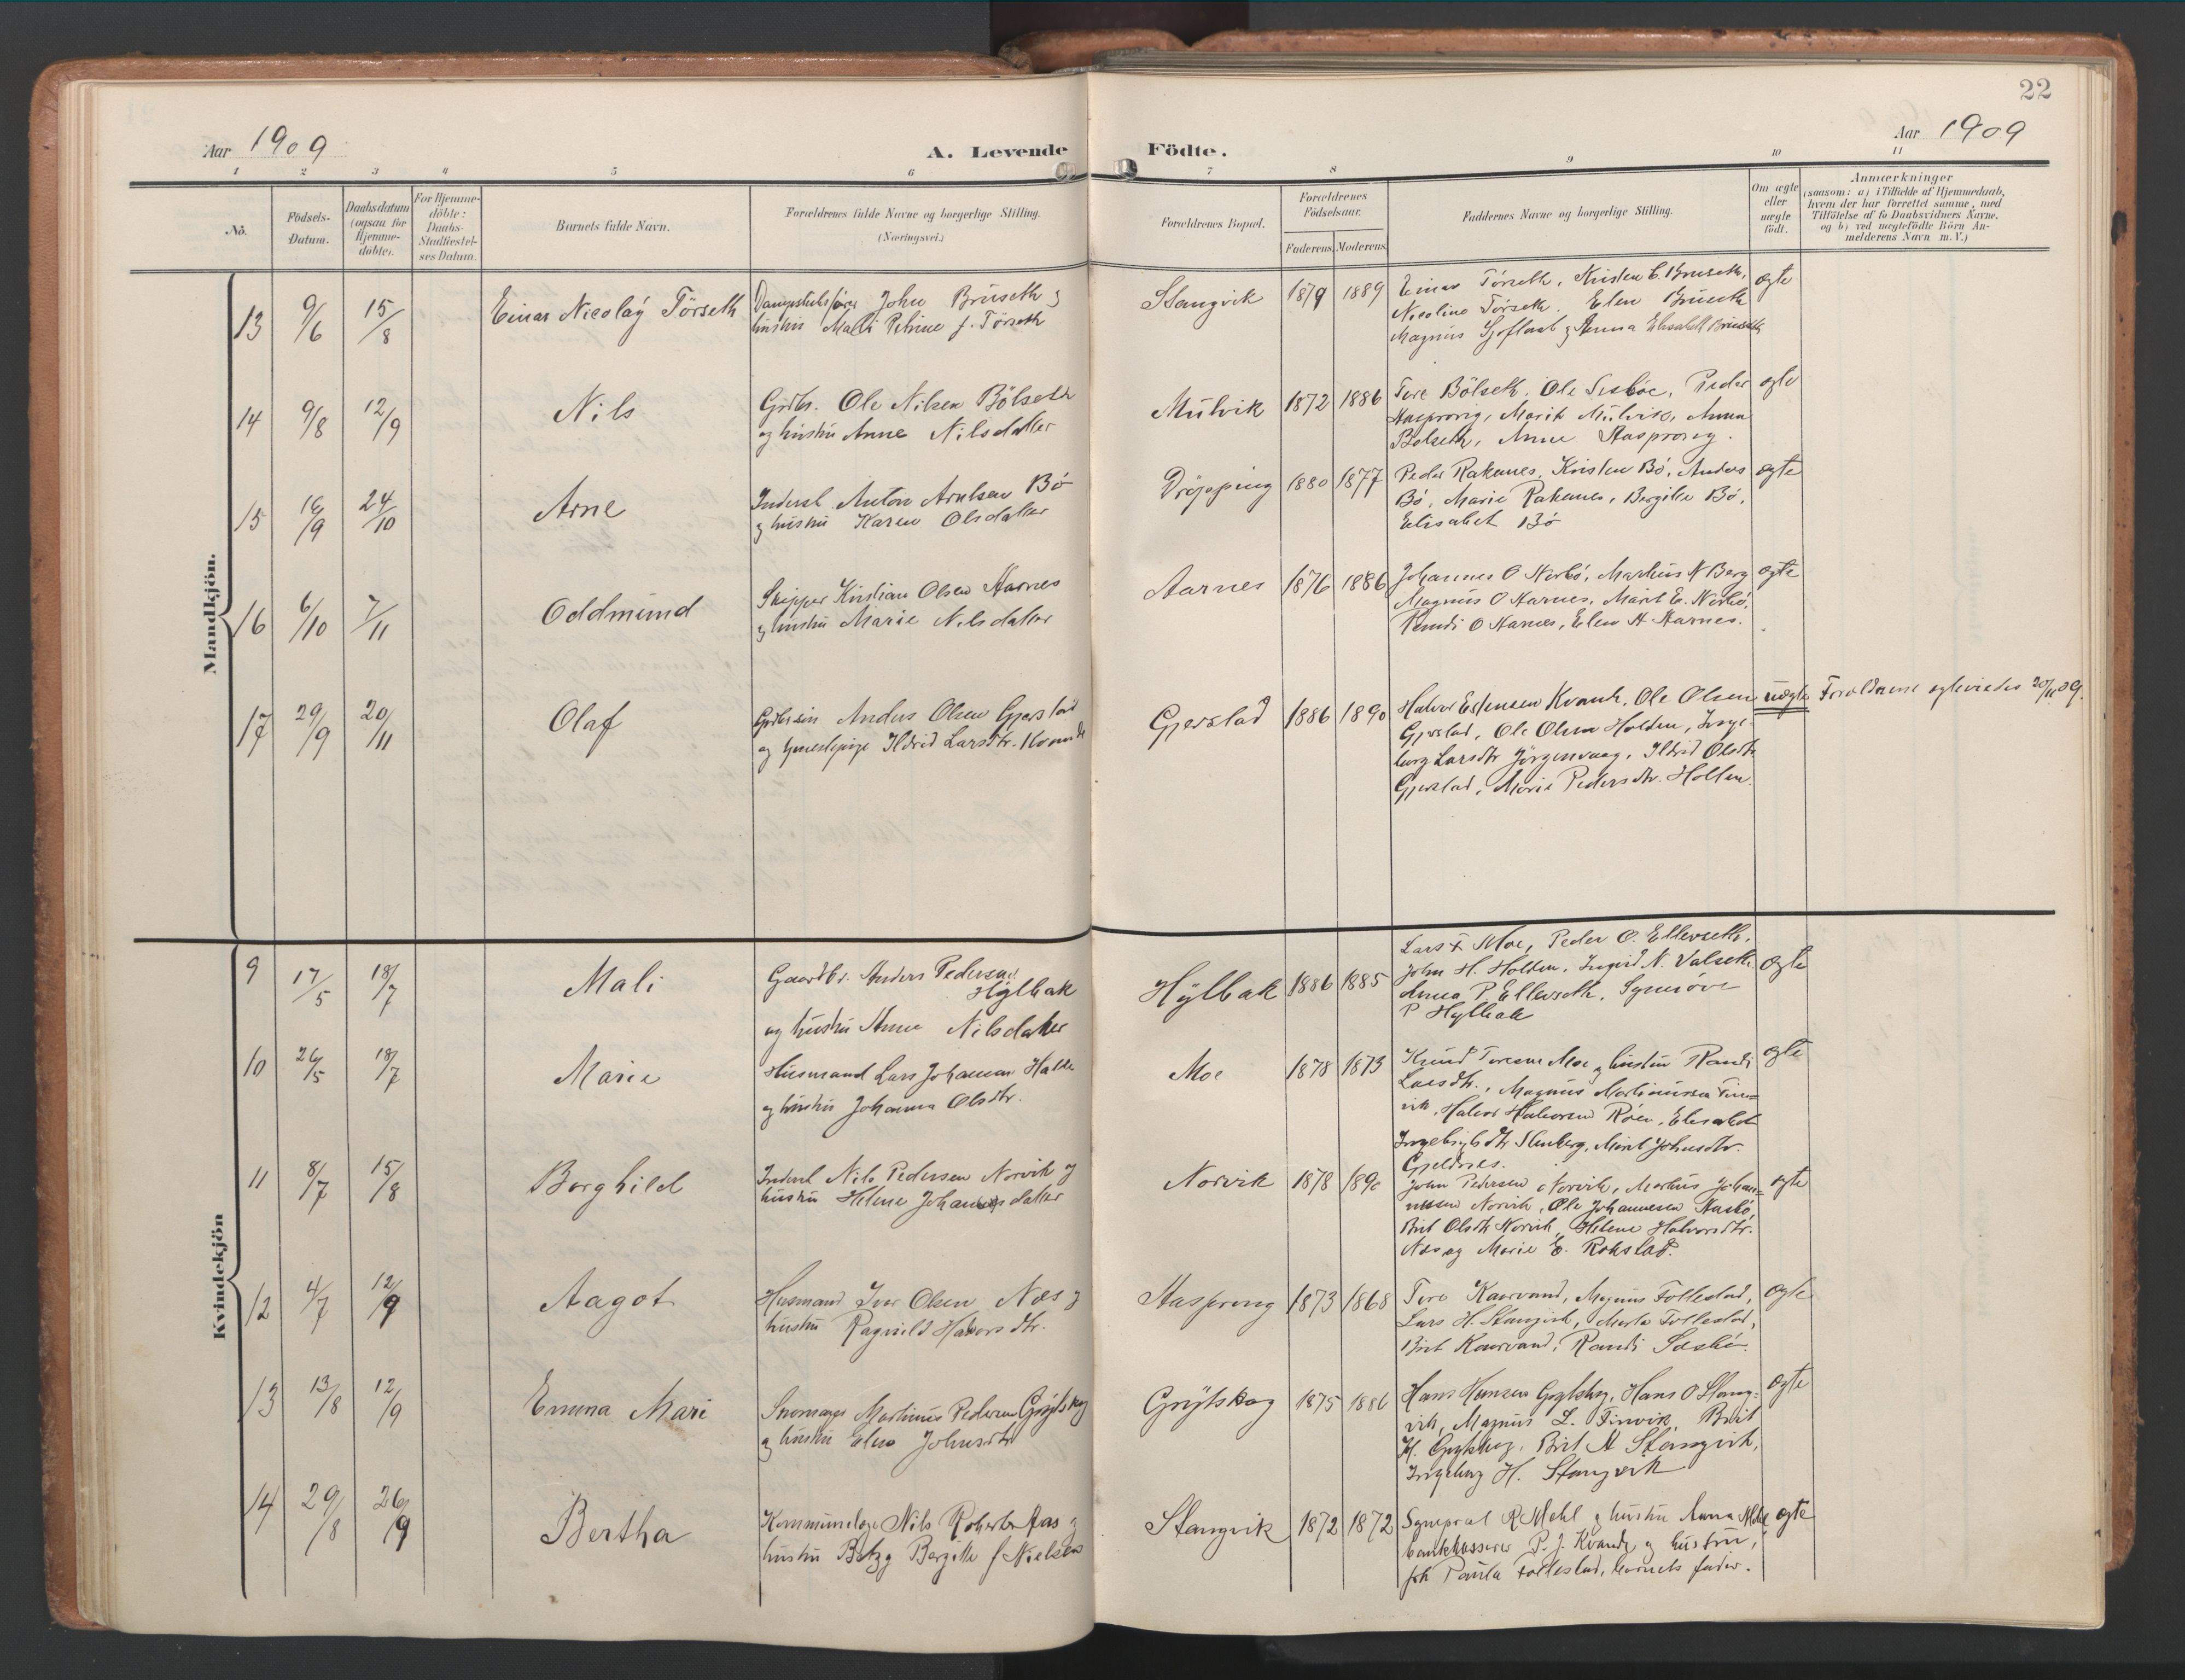 22
Aar 1909
A. Levende Födte.
Aar 1909
1 2 3 4 5 6 7 8 9 10 11
No.
Födsels-Datum.
Daabsdatum (ogsaa for Hjemme-döbte).
For Hjemme-döbte: Daabs-Stadfæstel-ses Datum.
Barnets fulde Navn.
Forældrenes fulde Navne og borgerlige Stilling. (Næringsvei.)
Forældrenes Bopæl.
Forældrenes Födselsaar.
Faderens. Moderens.
Faddernes Navne og borgerlige Stilling.
Om ægte eller uægte født.
Anmærkninger
(saasom: a) i Tilfælde af Hjemmedaab,
hvem der har forrettet samme, med
Tilföielse af to Daabsvidners Navne,
og b) ved uægtefödte Börn An-
melderens Navn m. V.)
Mandkjön.
13 9/6 15/8 Einar Nicolaÿ Törseth
John Brüseth
hustru Malli Petrine f. Törseth
Stangvik 1879 1889
Einar Törseth, Kristen C. Bruseth,
Nicoline Törseth. Elen Brüseth
Magnus & Anna Elisabeth Brüseth
ægte
14 9/8 12/9 Nils
Grdbr. Ole Nilsen Bölseth
og hustru Anne Nilsdatter
Mülvik 1872 1886
Tore Bölseth, Ole Sesböe, Peder
Aasprong, Marit Mülvik, Anna
Bolseth, Anne Aasprong.
ægte
15 16/9 24/10 Arne
Inderst Anton Arntsen Bö
& hustru Karen Olsdatter
Dröpping 1880 1877
Peder Rakanes, Kristen Bö, Anders
Bö, Marie Rakanes, Bergitte Bö,
Elisabet Bö
ægte
16 6/10 7/11 Oddmünd
Skipper Kristian Olsen Aarnes
& hustru Marie Nilsdatter
Aarnes 1876 1886
Johannes O Nerbö, Markus N Berg
Magnus O Aarnes, Marit E. Nerbö,
Randi O Aarnes, Elen A Aarnes.
ægte
17 29/9 20/11 Olaf
Anders Olsen Gjerstad
og Ildrid Larsdtr. Kvande
Gjerstad 1886 1890
Halvor Estensen Kvande, Ole Olsen
Gjerstad, Ole Olsen Holden, Inge-
borg Larsdtr Jörgenvaag, Ildrid Olsdtr
Gjerstad, Marie Pedersdtr. Holten.
uægte
Forældrene egteviedes 20/11 09.
Kvindekjön
9 17/5 18/7 Mali
Gaardbr. Anders Pedersen
Hÿlbak
og hustru Anne Nilsdatter
Hÿlbak 1886 1885
Lars Moe, Peder O. Ellevseth.
John H. Holden, Ingrid N. Valseth.
Anna P. Ellevseth, Synnöve
P Hylbak
ægte
10 26/5 18/7 Marie
Husmand Lars Johansen
og hustru Johanna Olsdtr.
Moe 1878 1873
Knud Toresen Moe & hustru Randi
Larsdtr., Magnus Martinussen Tin-
vik, Halvor Halvorsen Röen, Elisabet
Ingebrigtsdtr Stenberg, Marit Johnsdtr.
Gjeldnes.
ægte
11 8/7 15/8 Borghild
Inderst Nils Pedersen Norvik &
hustru Helene Johannesdatter
Norvik 1878 1890
John Pedersen Norvik, Markus Johan-
nessen Norvik, Ole Johannesen Aasbö,
Brit Olsdtr Norvik, Helene Halvorsdtr.
Næs og Marie E. Rokstad.
ægte
12 4/7 12/9 Aagot
Husmand Ivar Olsen Næs &
hustru Ragnild Halvorsdtr.
Aasprong 1873 1868
Tore Kaarvand, Magnus Follestad,
Lars H. Stangvik, Marta Follestad,
Brit Kaarvand, Randi Sæsbö.
ægte
13 13/8 12/9 Emma Mari
Martinus Pedersen Grÿtskog
& hustru Elen Johnsdtr
Grÿtskog 1875 1886
Hans Hansen Grytskog, Hans O Stang-
vik, Magnus L. Tinvik, Brit
H. Grytskog, Brit A Stangvik,
Ingeborg H. Stangvik
ægte
14 29/8 26/9 Bertha
Kommunelæge Nils Aas &
hustru Betzy Bergitte f Nielsen
Stangvik 1872 1872
Sogneprest R Mehl & hustru Anna Mehl
bankkasserer P. J. Kvande & hustru,
frk Paula Follestad, barnets fader.
ægte